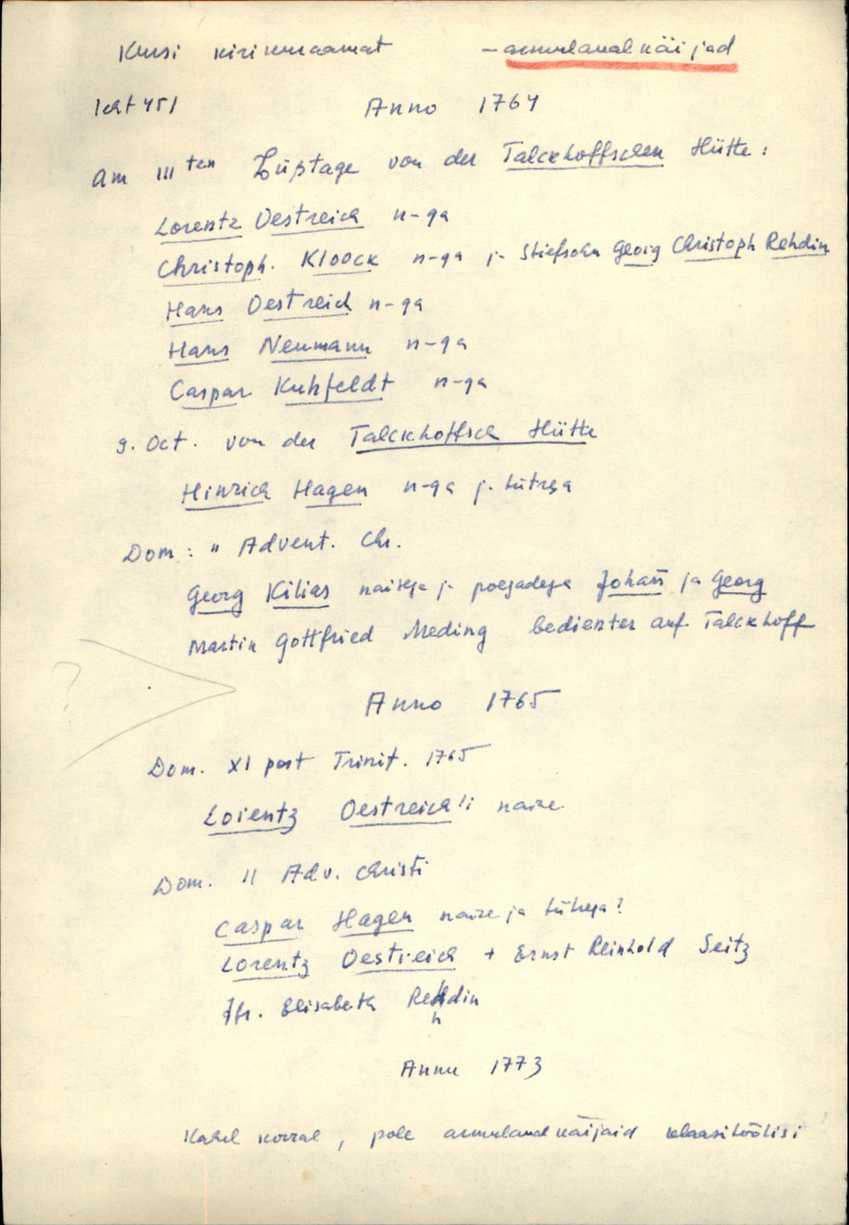 Kursi kirikuraamat - armulaual käijad
leht 451 Anno 1764
Am III ten Bußtage von der Talckhoffschen Hütte:
Lorentz Oestreich n-ga
Christoph. Kloock n-ga j. Stiefsohn Georg Christoph Rehdin
Hans Oestreich n-ga
Hans Neumann n-ga
Caspar Kuhfeldt n-ga
9. Oct. von der Talckhoffsch Hütte
Hinrich Hagen n-ga j. tütrega
Dom: II Advent. Chr.
Georg Kilias naisega j. poegadega Johan̄ ja Georg
Martin Gottfried Meding bedienter auf Talckhoff
?
Anno 1765
Dom. XI post Trinit. 1765
Lorentz Oestreich'i naine
Dom. II Adv. Christi
Caspar Hagen naise ja tütrega?
Lorentz Oestreich + Ernst Reinhold Seitz
Jfr. Elisabeth Rehdin
h
Anno 1773
Kahel korral, pole armulaual käijaid klaasitöölisi